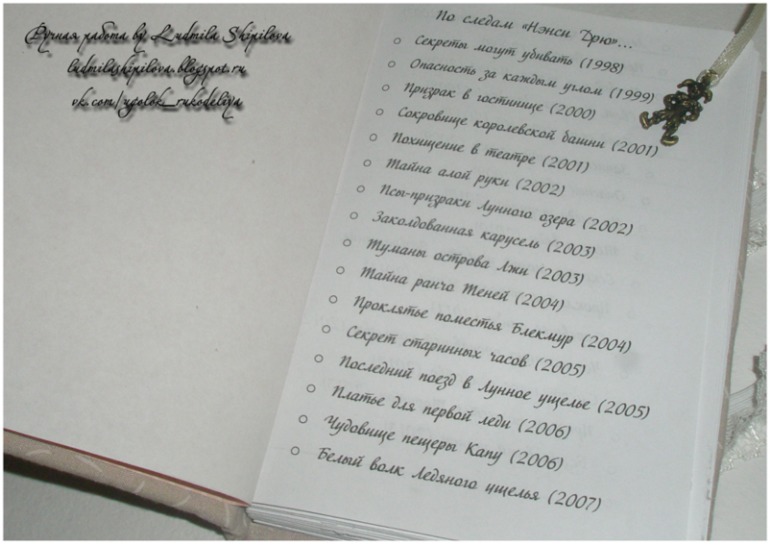 Ручная работа by Ludmila Shipilova
ludmilashipilova.blogspot.ru
vk.com/ugolok_rukodeliya
По следам «Нэнси Дрю»...
Секреты могут убивать (1998)
Опасность за каждым углом (1999)
Призрак в гостинице (2000)
Сокровище королевской башни (2001)
Похищение в театре (2001)
Тайна алой руки (2002)
Псы-призраки Лунного озера (2002)
Заколдованная карусель (2003)
Туманы острова Лжи (2003)
Тайна ранчо Теней (2004)
Проклятье поместья Блекмур (2004)
Секрет старинных часов (2005)
Последний поезд в Лунное ущелье (2005)
Платье для первой леди (2006)
Чудовище пещеры Капу (2006)
Белый волк Ледяного ущелья (2007)